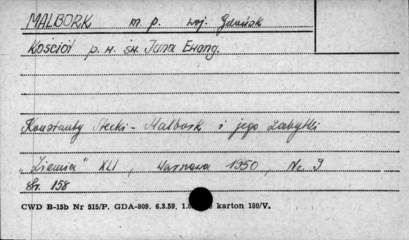 MALBORK m. p. woj. Gdańsk
Kościół p. w. św. Jana Ewang.
Konstanty Stecki - Malbork i jego zabytki
"Ziemia" XLI, Warszawa 1950, Nr. 9
str. 158
CWD B-15b Nr 515/P. GDA-809. 6.3.59. 1.0 karton 180/V.